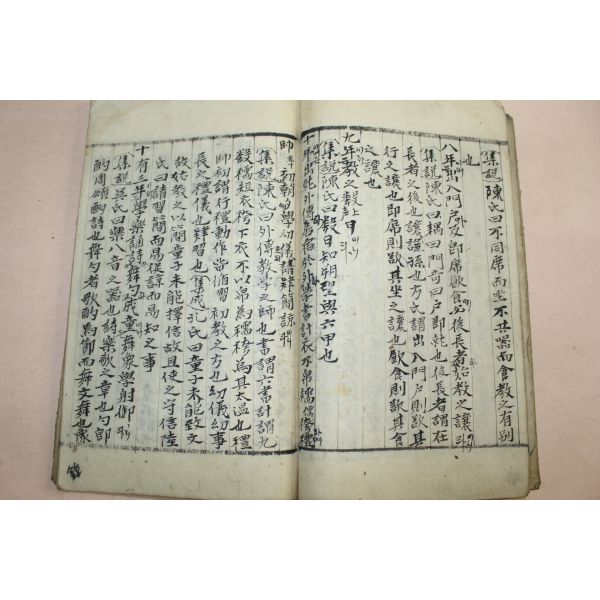 集說陳氏曰不同席而坐不共器而食教之有別
也
八年出入門戶及卽席飮食必後長者始教之讓
集說陳氏曰耦曰門奇曰戶卽就也後長者謂在
長者之後也讓謙孫也方氏謂出入門戶則欲其
行之讓也卽席則欲其坐之讓也飮食則欲其食
之讓也
九年教之數日
集說陳氏曰數日知朔望與六甲也
十年出就外傅居宿於外學書計衣不帛襦袴禮
帥初朝夕學幼儀請肄簡諒
集說陳氏曰外傅教學之師也書謂六書計謂九
數襦短衣袴下衣不以帛爲襦袴爲其太溫也禮
帥初謂行禮動作當循習初教之方也幼儀幼事
長之禮儀也肄習也集成孔氏曰童子未能致文
故姑教之以簡童子未能擇信故且使之守信陸
氏曰請習簡而易從諒而易知之事
十有三年學樂誦詩舞勺成童舞象學射御
集說吳氏曰樂八音之器也詩樂歌之章也勺卽
酌周頌酌詩也舞勺者歌酌爲節而舞文舞也象